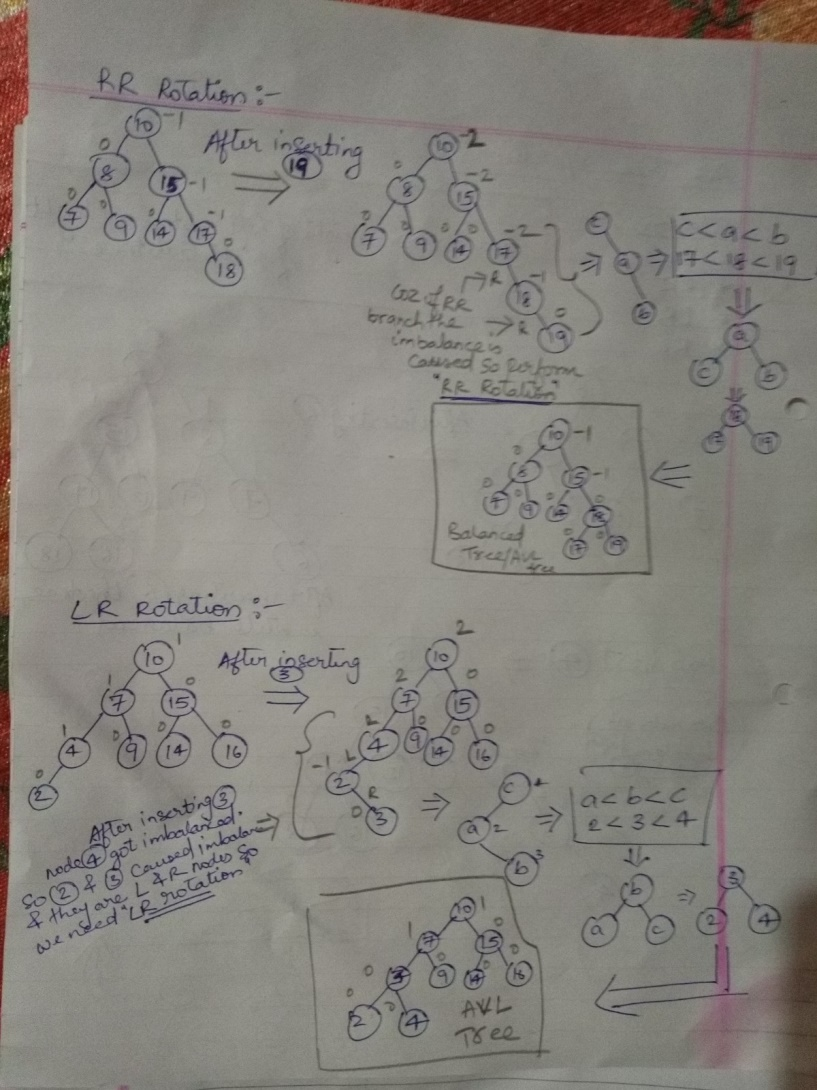 RR Rotation :-
10 -1
0 8
15 -1
0 7
0 9
0 14
17 -1
0 18
After inserting
19
10 -2
0 8
15 -2
0 7
0 9
0 14
17 -2
R 18 -1
R 19 0
coz of RR
branch the
imbalance is
caused so perform
"RR Rotation"
c
a
b
c < a < b
17 < 18 < 19
a
c b
18
17 19
10 -1
0 8
15 -1
0 7
0 9
0 14
0 18
0 17
0 19
Balanced
Tree/AVL
tree
LR Rotation :-
10 1
1 7
15 0
1 4
0 9
0 14
0 16
0 2
After inserting
3
10 2
2 7
15 0
L 4
0 9
0 14
0 16
-1 2 L
0 3 R
After inserting 3
node 4 got imbalanced.
So 2 & 3 caused imbalance
& they are L & R nodes so
we need "LR rotation"
c 4
a 2
b 3
a < b < c
2 < 3 < 4
b
a c
3
2 4
10 1
1 7
15 0
0 3
0 9
0 14
0 16
0 2
0 4
AVL
Tree